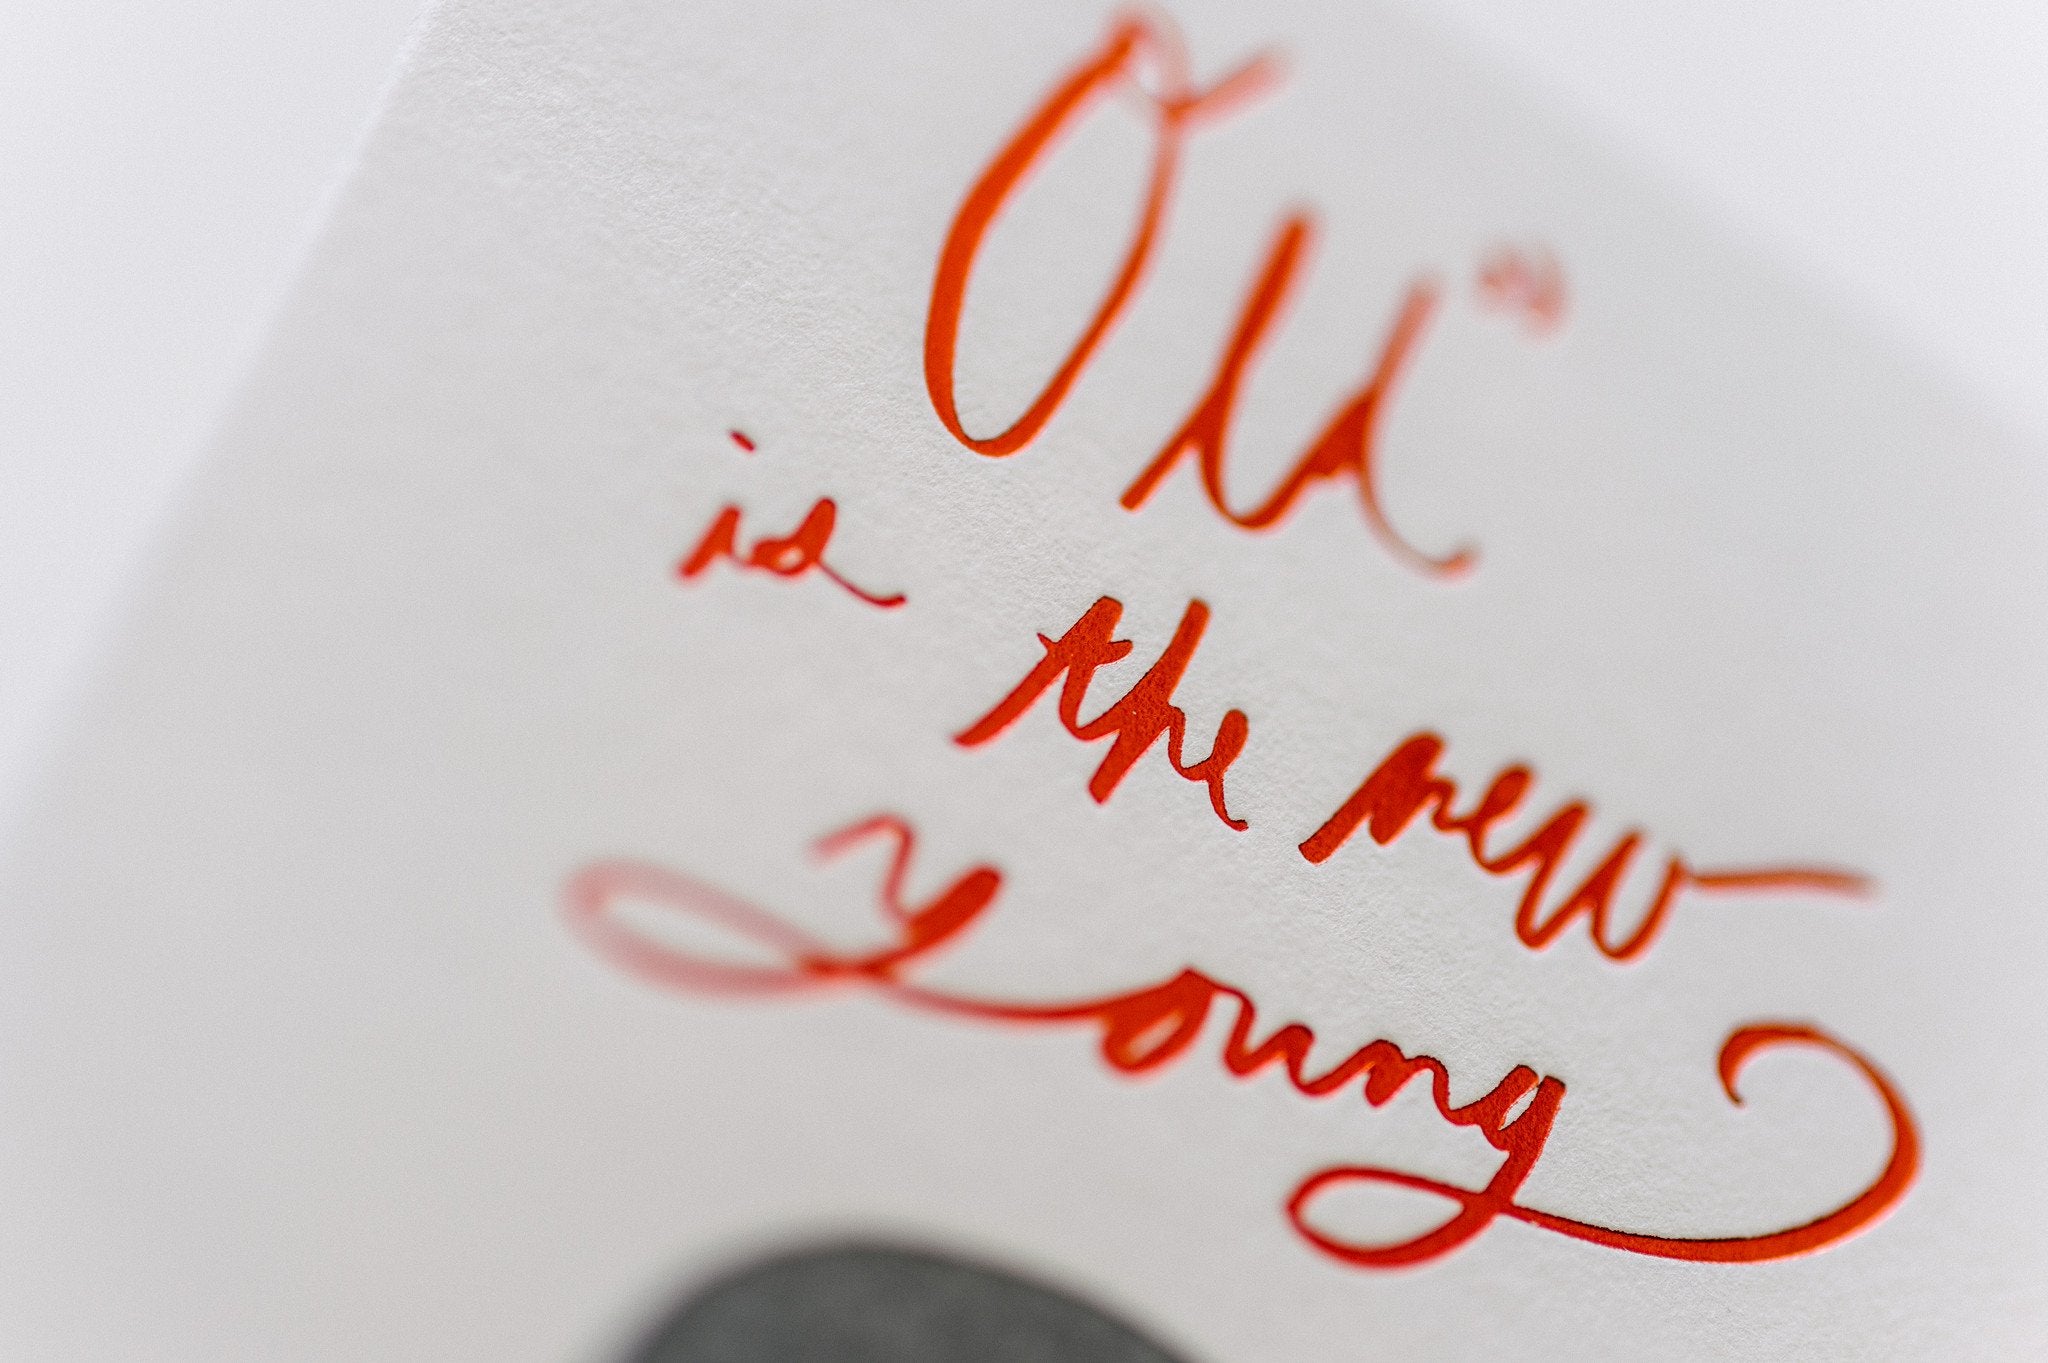 Old
is the new
Young